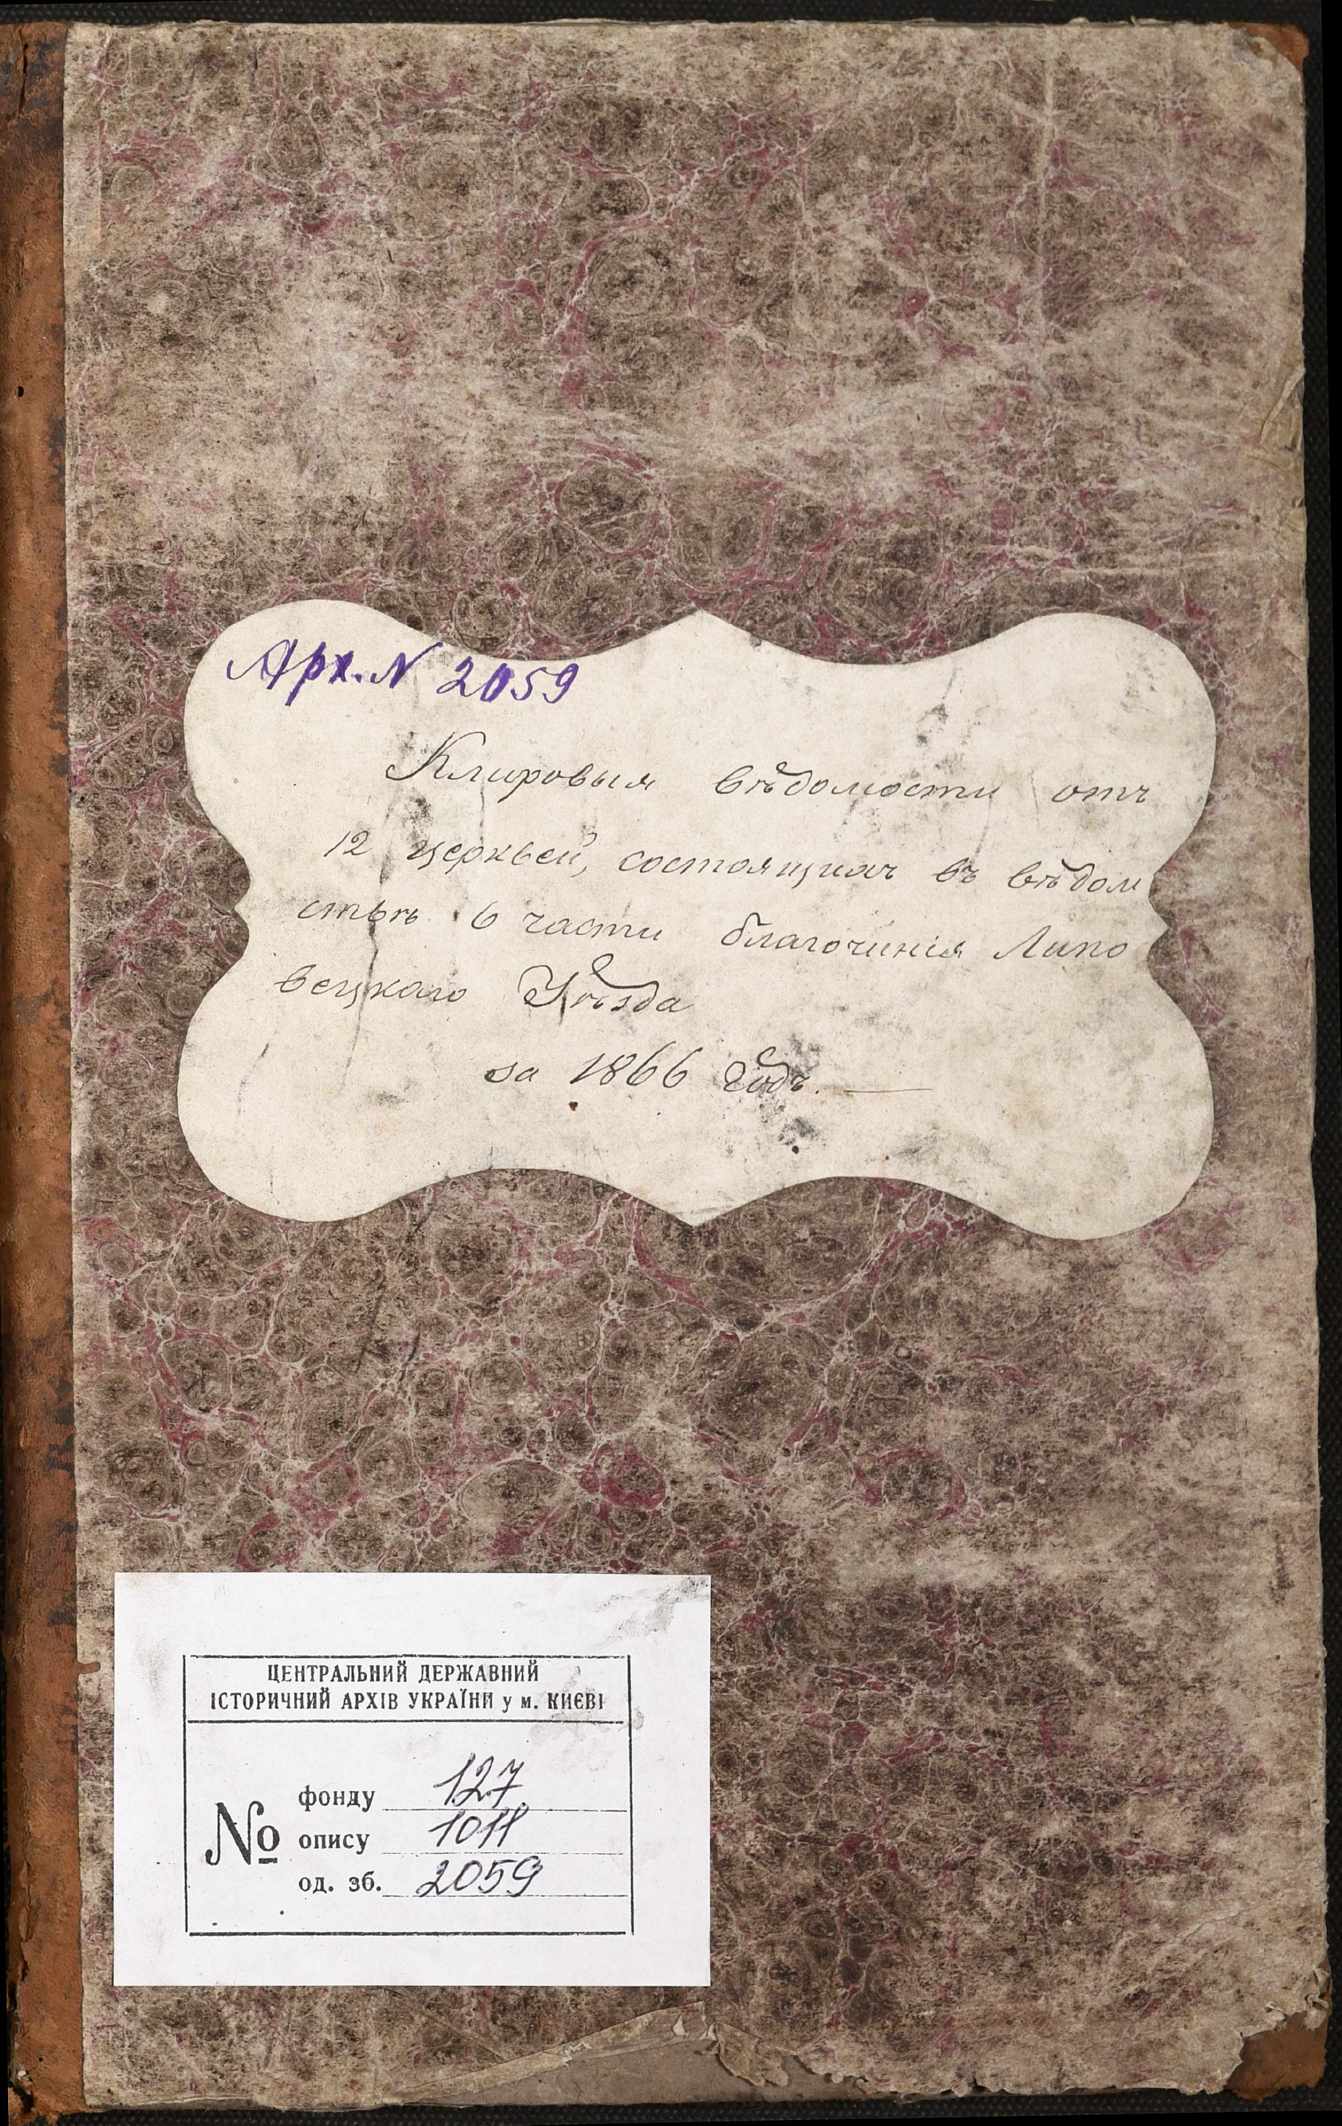 Арх. N 2059
Клировыя вѣдомости отъ
12 церквей, состоящихъ въ вѣдом
ствѣ 6 части благочинія Липо
вецкаго Уѣзда
за 1866 годъ.
ЦЕНТРАЛЬНИЙ ДЕРЖАВНИЙ
ІСТОРИЧНИЙ АРХІВ УКРАЇНИ у м. КИЄВІ
№
фонду 127
опису 1011
од. зб. 2059